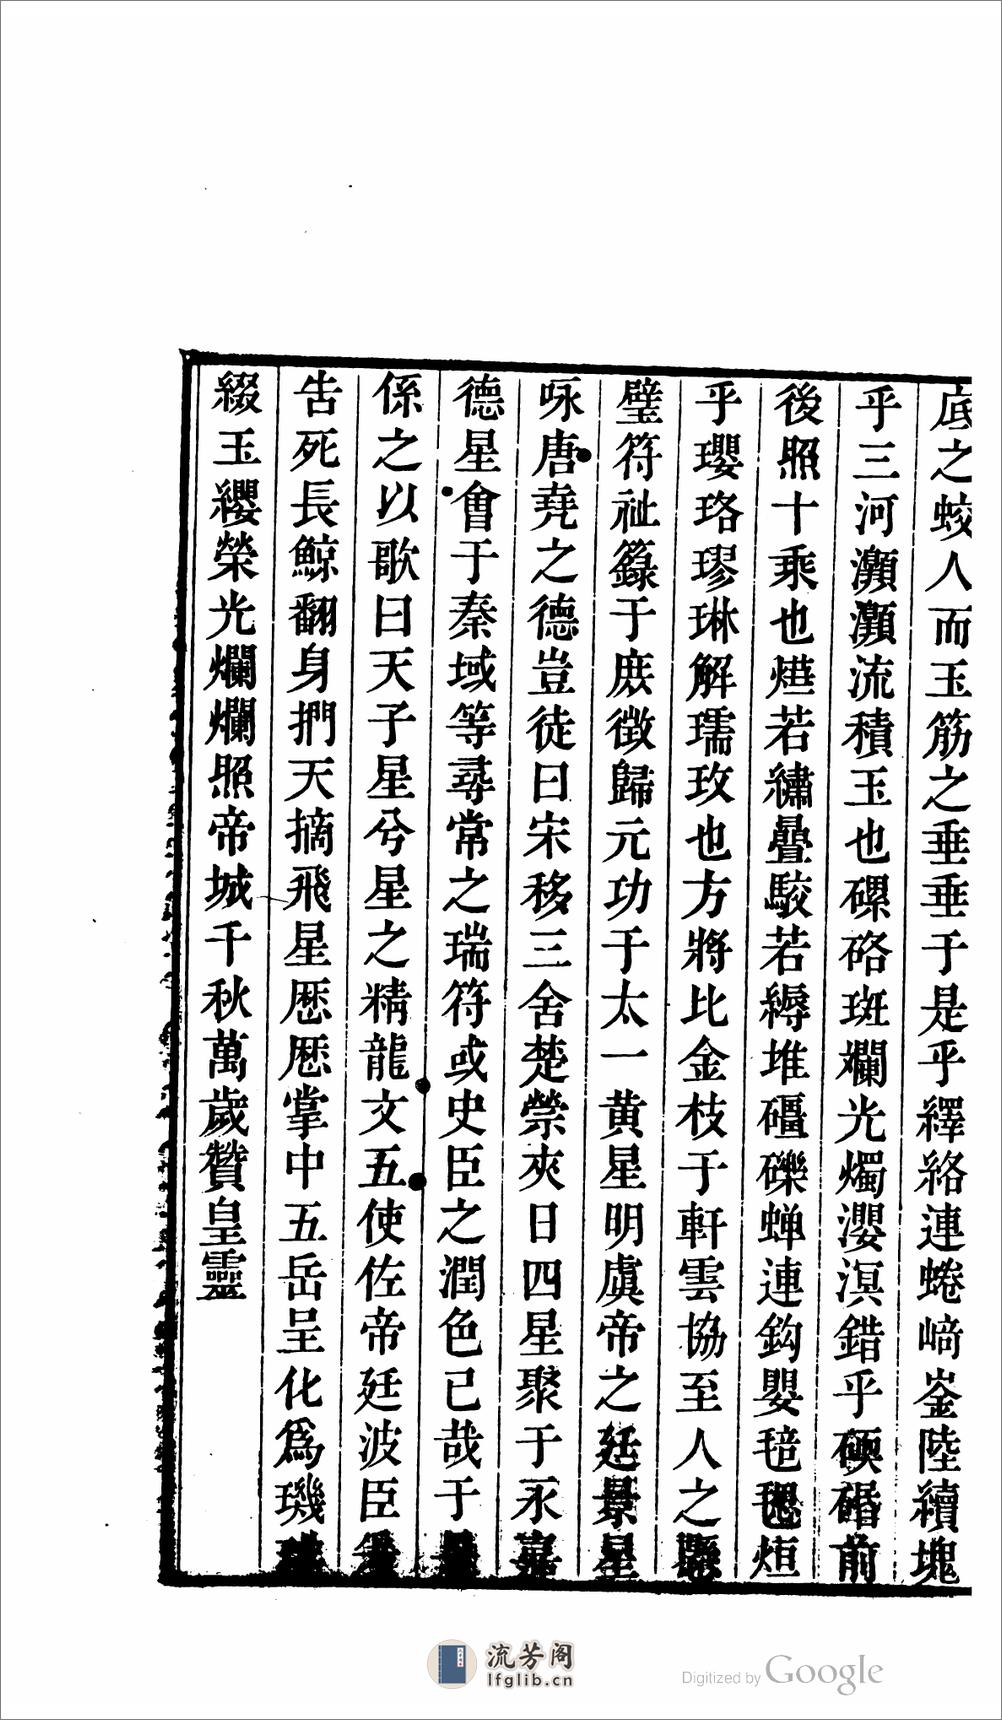 底之蛟人而玉筋之垂垂于是乎繹絡連蜷崎崟陸續塊
乎三河灝灝流積玉也磥硌斑爛光燭濙溟錯乎碝碈前
後照十乘也爡若繡疊駮若縟堆礓礫蝉連鈎嬰毰毸炬
乎瓔珞璆琳解瓀玫也方將比金枝于軒雲協至人之
璧符祉籙于庶徵歸元功于太一黃星明虞帝之廷景星
咏唐堯之德豈徒曰宋移三舍楚禜夾日四星聚于永嘉
德星會于秦域等尋常之瑞符或史臣之潤色已哉于
係之以歌曰天子星兮星之精龍文五使佐帝廷波臣
告死長鯨翻身捫天摘飛星歷歷掌中五岳呈化爲璣
綴玉纓榮光爛爛照帝城千秋萬歲贊皇靈
流芳阁
lfglib.cn
Digitized by Google